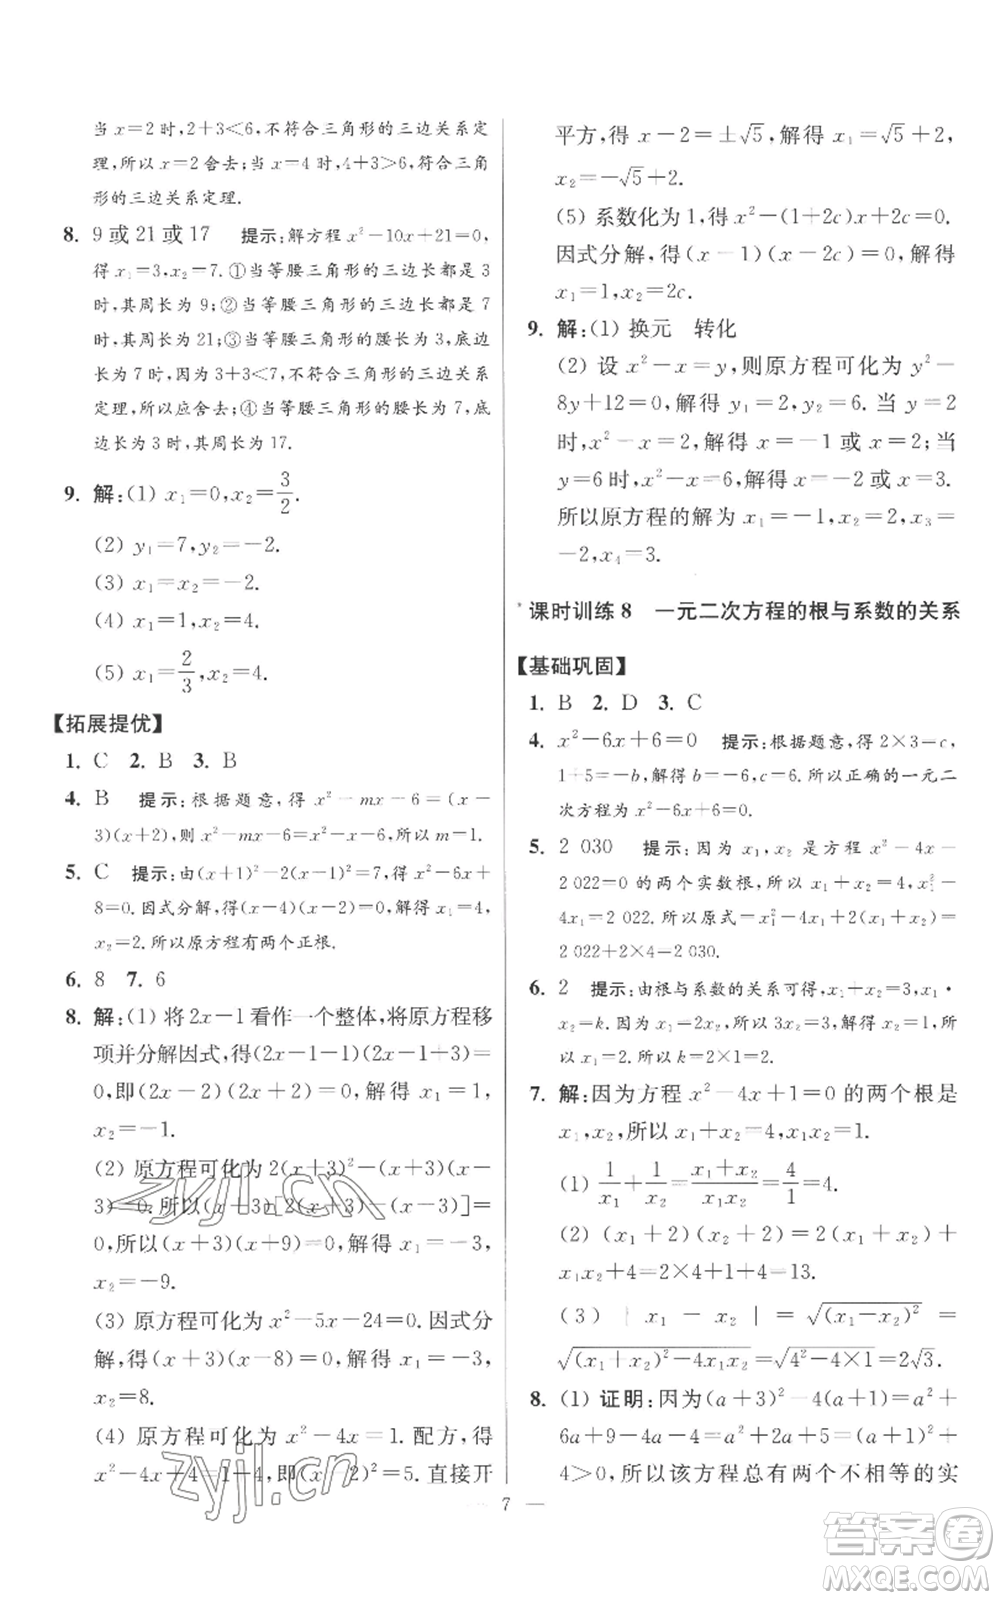 当 x=2 时,2+3<6,不符合三角形的三边关系定
理,所以 x=2 舍去;当 x=4 时,4+3>6,符合三角
形的三边关系定理.
8. 9 或 21 或 17 提示:解方程 x²-10x+21=0,
得 x₁=3,x₂=7.①当等腰三角形的三边长都是 3
时,其周长为 9;②当等腰三角形的三边长都是 7
时,其周长为 21;③当等腰三角形的腰长为 3,底边
长为 7 时,因为 3+3<7,不符合三角形的三边关系
定理,所以应舍去;④当等腰三角形的腰长为 7,底
边长为 3 时,其周长为 17.
9. 解:(1) x₁=0,x₂=3/2.
(2) y₁=7,y₂=-2.
(3) x₁=x₂=-2.
(4) x₁=1,x₂=4.
(5) x₁=2/3,x₂=4.
【拓展提优】
1. C 2. B 3. B
4. B 提示:根据题意,得 x²-mx-6=(x-
3)(x+2),则 x²-mx-6=x²-x-6,所以 m=1.
5. C 提示:由(x+1)²-2(x-1)²=7,得 x²-6x+
8=0.因式分解,得(x-4)(x-2)=0.解得 x₁=4,
x₂=2.所以原方程有两个正根.
6. 8 7. 6
8. 解:(1) 将 2x-1 看作一个整体,将原方程移
项并分解因式,得(2x-1-1)(2x-1+3)=
0,即(2x-2)(2x+2)=0,解得 x₁=1,
x₂=-1.
(2) 原方程可化为 2(x+3)²-(x+3)(x-
3)=0.所以(x+3)[2(x+3)-(x-3)]=
0,所以(x+3)(x+9)=0,解得 x₁=-3,
x₂=-9.
(3) 原方程可化为 x²-5x-24=0.因式分
解,得(x+3)(x-8)=0,解得 x₁=-3,
x₂=8.
(4) 原方程可化为 x²-4x=1.配方,得
x²-4x+4=1+4,即(x-2)²=5.直接开
平方,得 x-2=±√5,解得 x₁=√5+2,
x₂=-√5+2.
(5) 系数化为 1,得 x²-(1+2c)x+2c=0.
因式分解,得(x-1)(x-2c)=0,解得
x₁=1,x₂=2c.
9. 解:(1) 换元 转化
(2) 设 x²-x=y,则原方程可化为 y²-
8y+12=0,解得 y₁=2,y₂=6.当 y=2
时,x²-x=2,解得 x=-1 或 x=2;当
y=6 时,x²-x=6,解得 x=-2 或 x=3.
所以原方程的解为 x₁=-1,x₂=2,x₃=
-2,x₄=3.
课时训练 8 一元二次方程的根与系数的关系
【基础巩固】
1. B 2. D 3. C
4. x²-6x+6=0 提示:根据题意,得 2×3=c,
1+5=-b,解得 b=-6,c=6.所以正确的一元二
次方程为 x²-6x+6=0.
5. 2 030 提示:因为 x₁,x₂ 是方程 x²-4x-
2 022=0 的两个实数根,所以 x₁+x₂=4,x₁²-
4x₁=2 022.所以原式=x₁²-4x₁+2(x₁+x₂)=
2 022+2×4=2 030.
6. 2 提示:由根与系数的关系可得,x₁+x₂=3,x₁·
x₂=k.因为 x₁=2x₂,所以 3x₂=3,解得 x₂=1,所
以 x₁=2.所以 k=2×1=2.
7. 解:因为方程 x²-4x+1=0 的两个根是
x₁,x₂,所以 x₁+x₂=4,x₁x₂=1.
(1) 1/x₁+1/x₂=(x₁+x₂)/(x₁x₂)=4/1=4.
(2) (x₁+2)(x₂+2)=2(x₁+x₂)+
x₁x₂+4=2×4+1+4=13.
(3) |x₁-x₂|=√((x₁-x₂)²)=
√((x₁+x₂)²-4x₁x₂)=√(4²-4×1)=2√3.
8. (1) 证明:因为(a+3)²-4(a+1)=a²+
6a+9-4a-4=a²+2a+5=(a+1)²+
4>0,所以该方程总有两个不相等的实
— 7 —
zyjl.cn
zyjl.cn
答案圈
MXQE.COM